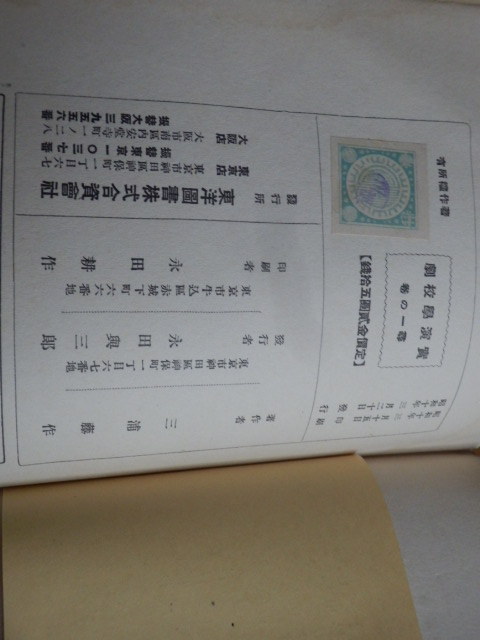 著作權所有
實演學校劇
尋一の卷
【定價金貳圓五拾錢】
昭和十年三月十五日印刷
昭和十年三月二十日發行
著作者 三浦藤作
東京市神田區神保町一丁目六七番地
發行者 永田與三郎
東京市牛込區赤城下町六六番地
印刷者 永田耕作
發行所 東洋圖書株式合資會社
東京店 東京市神田區神保町一丁目六七
振替東京一〇三七番
大阪店 大阪市南區內安堂寺町一ノ二八
振替大阪三九五六番